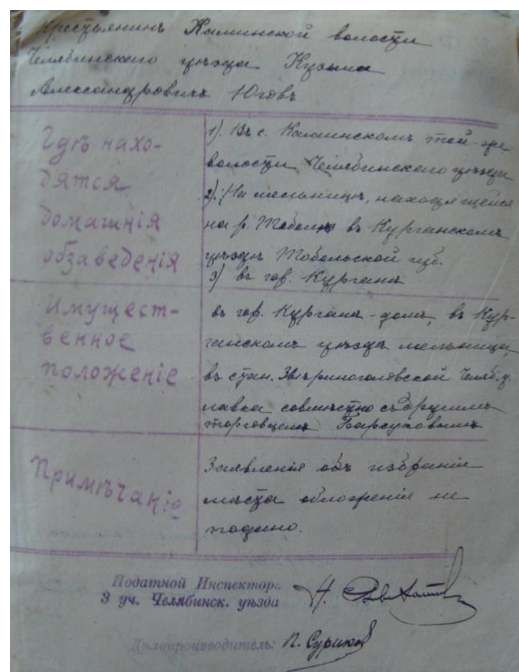 Крестьянинъ Каминской волости
Челябинского уѣзда Кузьма
Александровичъ Юговъ
Гдѣ нахо-
дятся
домашнія
обзаведенія
1). Въ с. Каминскомъ той-же
волости Челябинскаго уѣзда
2). На мельницѣ, находящейся
на р. Тоболѣ въ Курганскомъ
уѣздѣ Тобольской губ.
3) въ гор. Курганѣ
Имущест-
венное
положеніе
въ гор. Курганѣ - домъ, въ Кур-
ганскомъ уѣздѣ мельница
въ стан. Звѣриноголовской Челяб. у.
лавка совмѣстно съ другимъ
торговцемъ Барсуковымъ
Примѣчаніе
Заявленія объ избраніи
мѣста обложенія не
подано.
Податной Инспекторъ
3 уч. Челябинск. уѣзда
Дѣлопроизводитель: П. Суриковъ